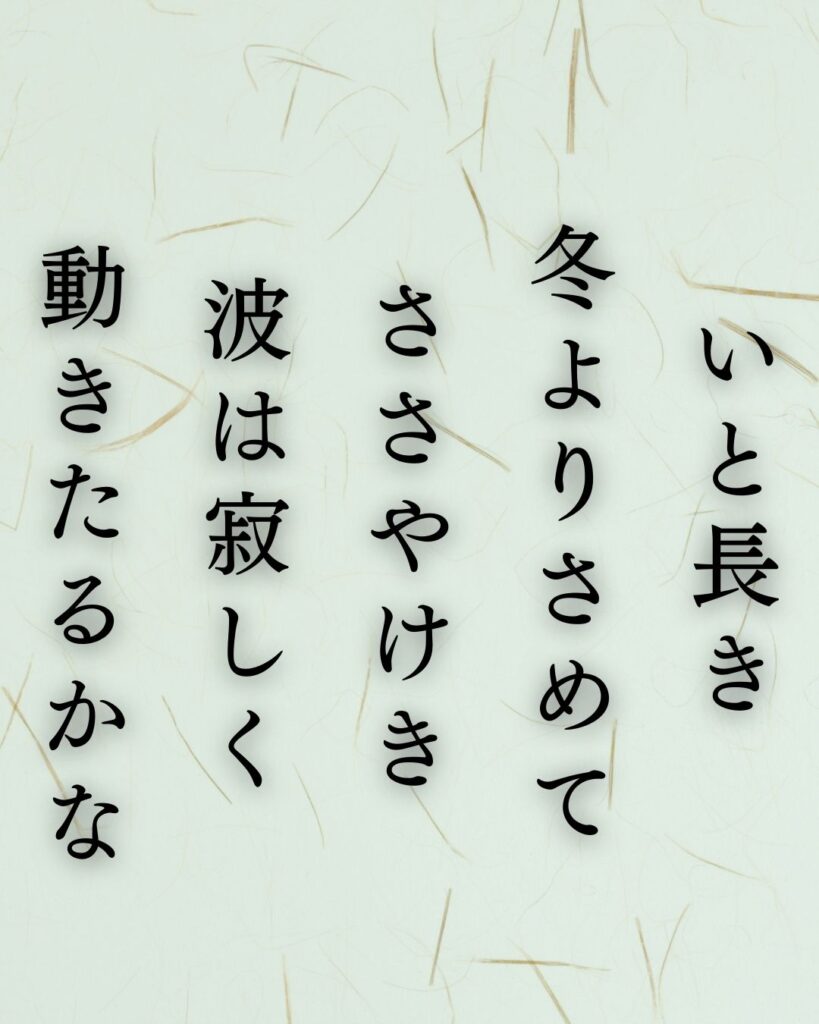 いと長き
冬よりさめて
ささやけき
波は寂しく
動きたるかな